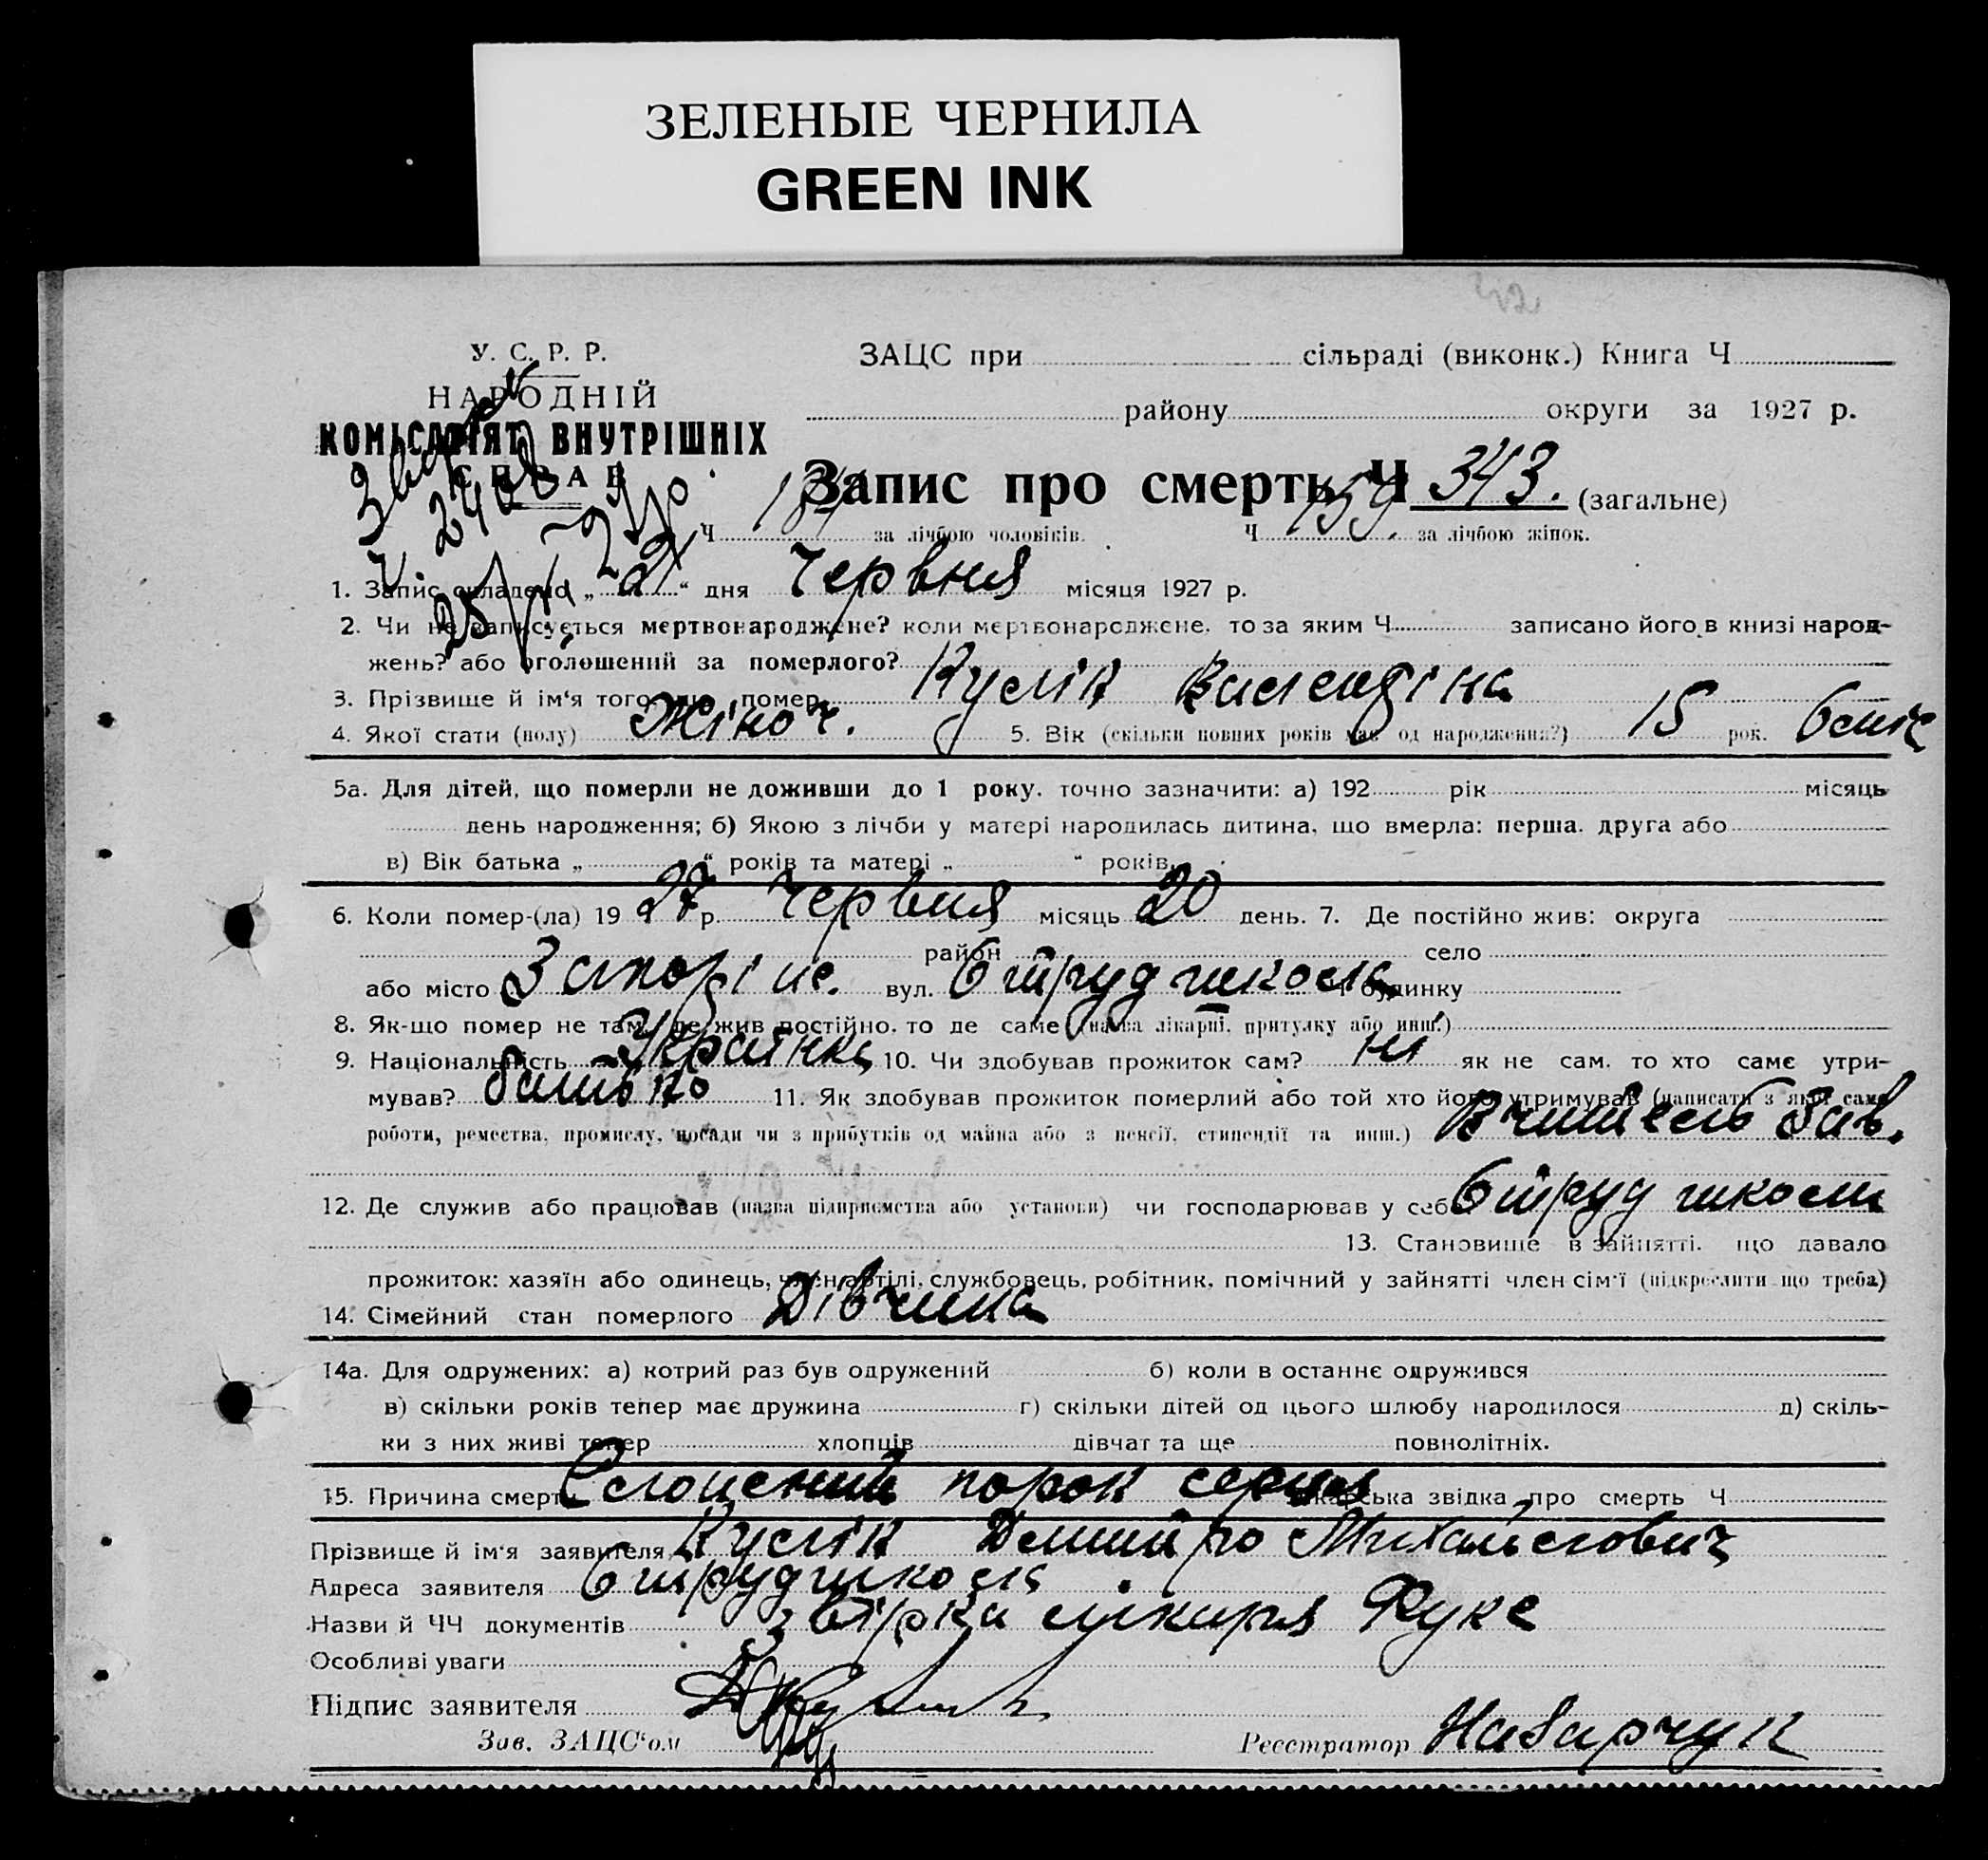 ЗЕЛЕНЫЕ ЧЕРНИЛА
GREEN INK
42
У. С. Р. Р.
НАРОДНІЙ
КОМІСАРІЯТ ВНУТРІШНІХ
СПРАВ
ЗАЦС при сільраді (виконк.) Книга Ч
району округи за 1927 р.
Запис про смерть Ч 343. (загальне)
Ч 184 за лічбою чоловіків. Ч 159. за лічбою жінок.
1. Запис складено „21“ дня Червня місяця 1927 р.
2. Чи не записується мертвонароджене? коли мертвонароджене, то за яким Ч записано його в книзі народ-
жень? або оголошений за померлого?
3. Прізвище й ім‘я того, що помер Кулік Валентіна
4. Якої стати (полу) Жіноч. 5. Вік (скільки повних років має од народження?) 15 рок. 6 міс
5а. Для дітей, що померли не доживши до 1 року, точно зазначити: а) 192 рік місяць
день народження; б) Якою з лічби у матері народилась дитина, що вмерла: перша, друга або
в) Вік батька „ “ років та матері „ “ років.
6. Коли помер-(ла) 1927 р. Червня місяць 20 день. 7. Де постійно жив: округа
район село
або місто Запоріже. вул. 6 труд школа Ч будинку
8. Як-що помер не там, де жив постійно, то де саме (назва лікарні, притулку або инш.)
9. Національність Українка 10. Чи здобував прожиток сам? ні як не сам, то хто саме утри-
мував? батько 11. Як здобував прожиток померлий або той хто його утримував (написати з якої саме
роботи, ремества, промислу, посади чи з прибутків од майна або з пенсії, стипендії та инш.) Вчитель Зав.
12. Де служив або працював (назва підприємства або установи) чи господарював у себе 6 труд школи
13. Становище в зайнятті, що давало
прожиток: хазяїн або одинець, член артілі, службовець, робітник, помічний у зайнятті член сім‘ї (підкреслити що треба)
14. Сімейний стан померлого Дівчина
14а. Для одружених: а) котрий раз був одружений б) коли в останнє одружився
в) скільки років тепер має дружина г) скільки дітей од цього шлюбу народилося д) скіль-
ки з них живі тепер хлопців дівчат та ще повнолітніх.
15. Причина смерти порок серця Лікарська звідка про смерть Ч
Прізвище й ім‘я заявителя Кулік Дмитро Михайлович
Адреса заявителя 6 труд школа
Назви й ЧЧ документів лікаря Фукс
Особливі уваги
Підпис заявителя
Зав. ЗАЦС‘ом Реєстратор Назарчук